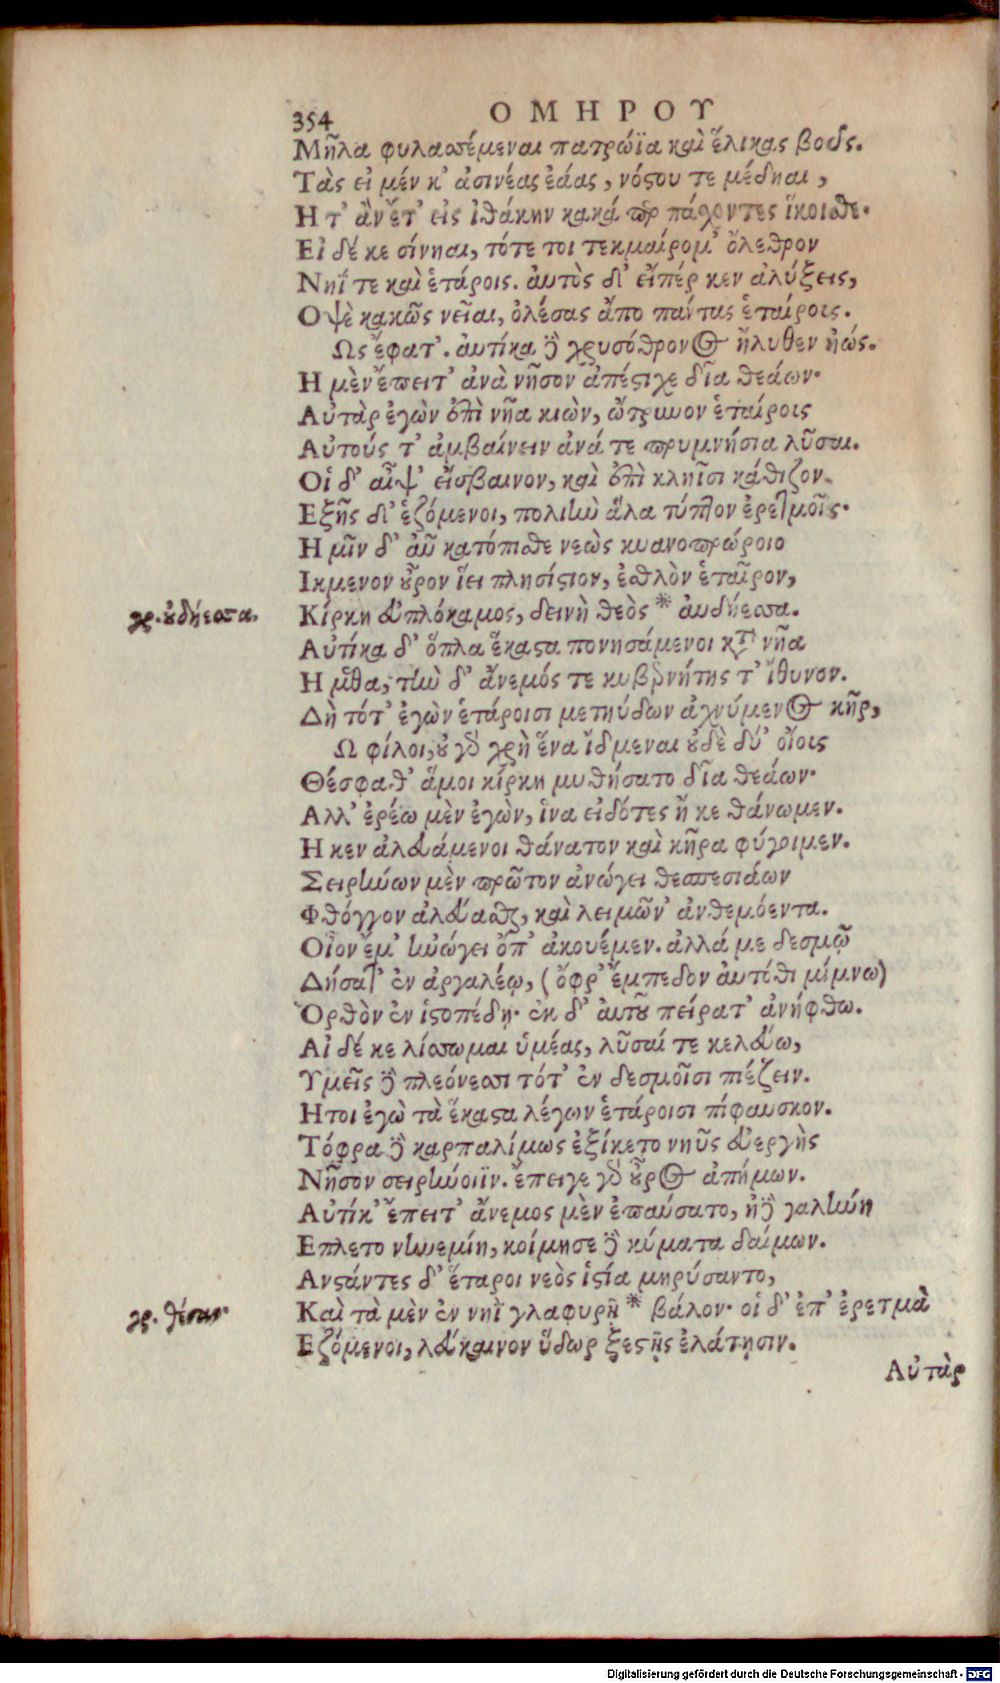 354
ΟΜΗΡΟΥ
Μῆλα φυλασσέμεναι πατρώϊα καὶ ἕλικας βοῦς.
Τὰς εἰ μέν κ' ἀσινέας ἐάας, νόστου τε μέδηαι,
Η τ' ἂν ἔτ' εἰς ἰθάκην κακά περ πάσχοντες ἵκοισθε.
Εἰ δέ κε σίνηαι, τότε τοι τεκμαίρομ' ὄλεθρον
Νηΐ τε καὶ ἑτάροις. αὐτὸς δ' εἴπέρ κεν ἀλύξεις,
Οψὲ κακῶς νεῖαι, ὀλέσας ἄπο παντας ἑταίροις.
Ως ἔφατ'. αὐτίκα δὲ χρυσόθρονος ἤλυθεν ἠώς.
Η μὲν ἔπειτ' ἀνὰ νῆσον ἀπέστιχε δῖα θεάων·
Αὐτὰρ ἐγὼν ἐπὶ νῆα κιὼν, ὤτρυνον ἑταίροις
Αὐτούς τ' ἀμβαίνειν ἀνά τε πρυμνήσια λῦσαι.
Οἱ δ' αἶψ' εἴσβαινον, καὶ ἐπὶ κληῖσι κάθιζον.
Εξῆς δ' ἑζόμενοι, πολιὴν ἅλα τύπτον ἐρετμοῖς·
Η μῖν δ' αὖ κατόπισθε νεὼς κυανοπρώροιο
Ικμενον οὖρον ἵει πλησίστιον, ἐσθλὸν ἑταῖρον,
Κίρκη ἐϋπλόκαμος, δεινὴ θεὸς * αὐδήεσσα.
γρ. οὐδήεσσα.
Αὐτίκα δ' ὅπλα ἕκαστα πονησάμενοι κατὰ νῆα
Η μεθα, τὴν δ' ἄνεμός τε κυβερνήτης τ' ἴθυνον.
Δὴ τότ' ἐγὼν ἑτάροισι μετηύδων ἀχνύμενος κῆρ,
Ω φίλοι, οὐ γὰρ χρὴ ἕνα ἴδμεναι οὐδὲ δύ' οἴοις
Θέσφαθ' ἅμοι κίρκη μυθήσατο δῖα θεάων·
Αλλ' ἐρέω μὲν ἐγὼν, ἵνα εἰδότες ἤ κε θάνωμεν.
Η κεν ἀλευάμενοι θάνατον καὶ κῆρα φύγοιμεν.
Σειρήνων μὲν πρῶτον ἀνώγει θεσπεσιάων
Φθόγγον ἀλεύασθαι, καὶ λειμῶν' ἀνθεμόεντα.
Οἶον ἔμ' ἠνώγει ὄπ' ἀκουέμεν. ἀλλά με δεσμῷ
Δήσατ' ἐν ἀργαλέῳ, (ὄφρ' ἔμπεδον αὐτόθι μίμνω)
Ὀρθὸν ἐν ἱστοπέδῃ· ἐκ δ' αὐτοῦ πείρατ' ἀνήφθω.
Αἰ δέ κε λίσσωμαι ὑμέας, λῦσαί τε κελεύω,
Υμεῖς δὲ πλεόνεσσι τότ' ἐν δεσμοῖσι πιέζειν.
Ητοι ἐγὼ τὰ ἕκαστα λέγων ἑτάροισι πίφαυσκον.
Τόφρα δὲ καρπαλίμως ἐξίκετο νηῦς εὐεργὴς
Νῆσον σειρήνοιϊν. ἔπειγε γὰρ οὖρος ἀπήμων.
Αὐτίκ' ἔπειτ' ἄνεμος μὲν ἐπαύσατο, ἠδὲ γαλήνη
Επλετο νηνεμίη, κοίμησε δὲ κύματα δαίμων.
Ανστάντες δ' ἕταροι νεὸς ἱστία μηρύσαντο,
Καὶ τὰ μὲν ἐν νηῒ γλαφυρῇ * βάλον· οἱ δ' ἐπ' ἐρετμὰ
γρ. θέσαν
Εζόμενοι, λεύκαινον ὕδωρ ξεστῇς ἐλάτῃσιν.
Αὐτὰρ
Digitalisierung gefördert durch die Deutsche Forschungsgemeinschaft - DFG